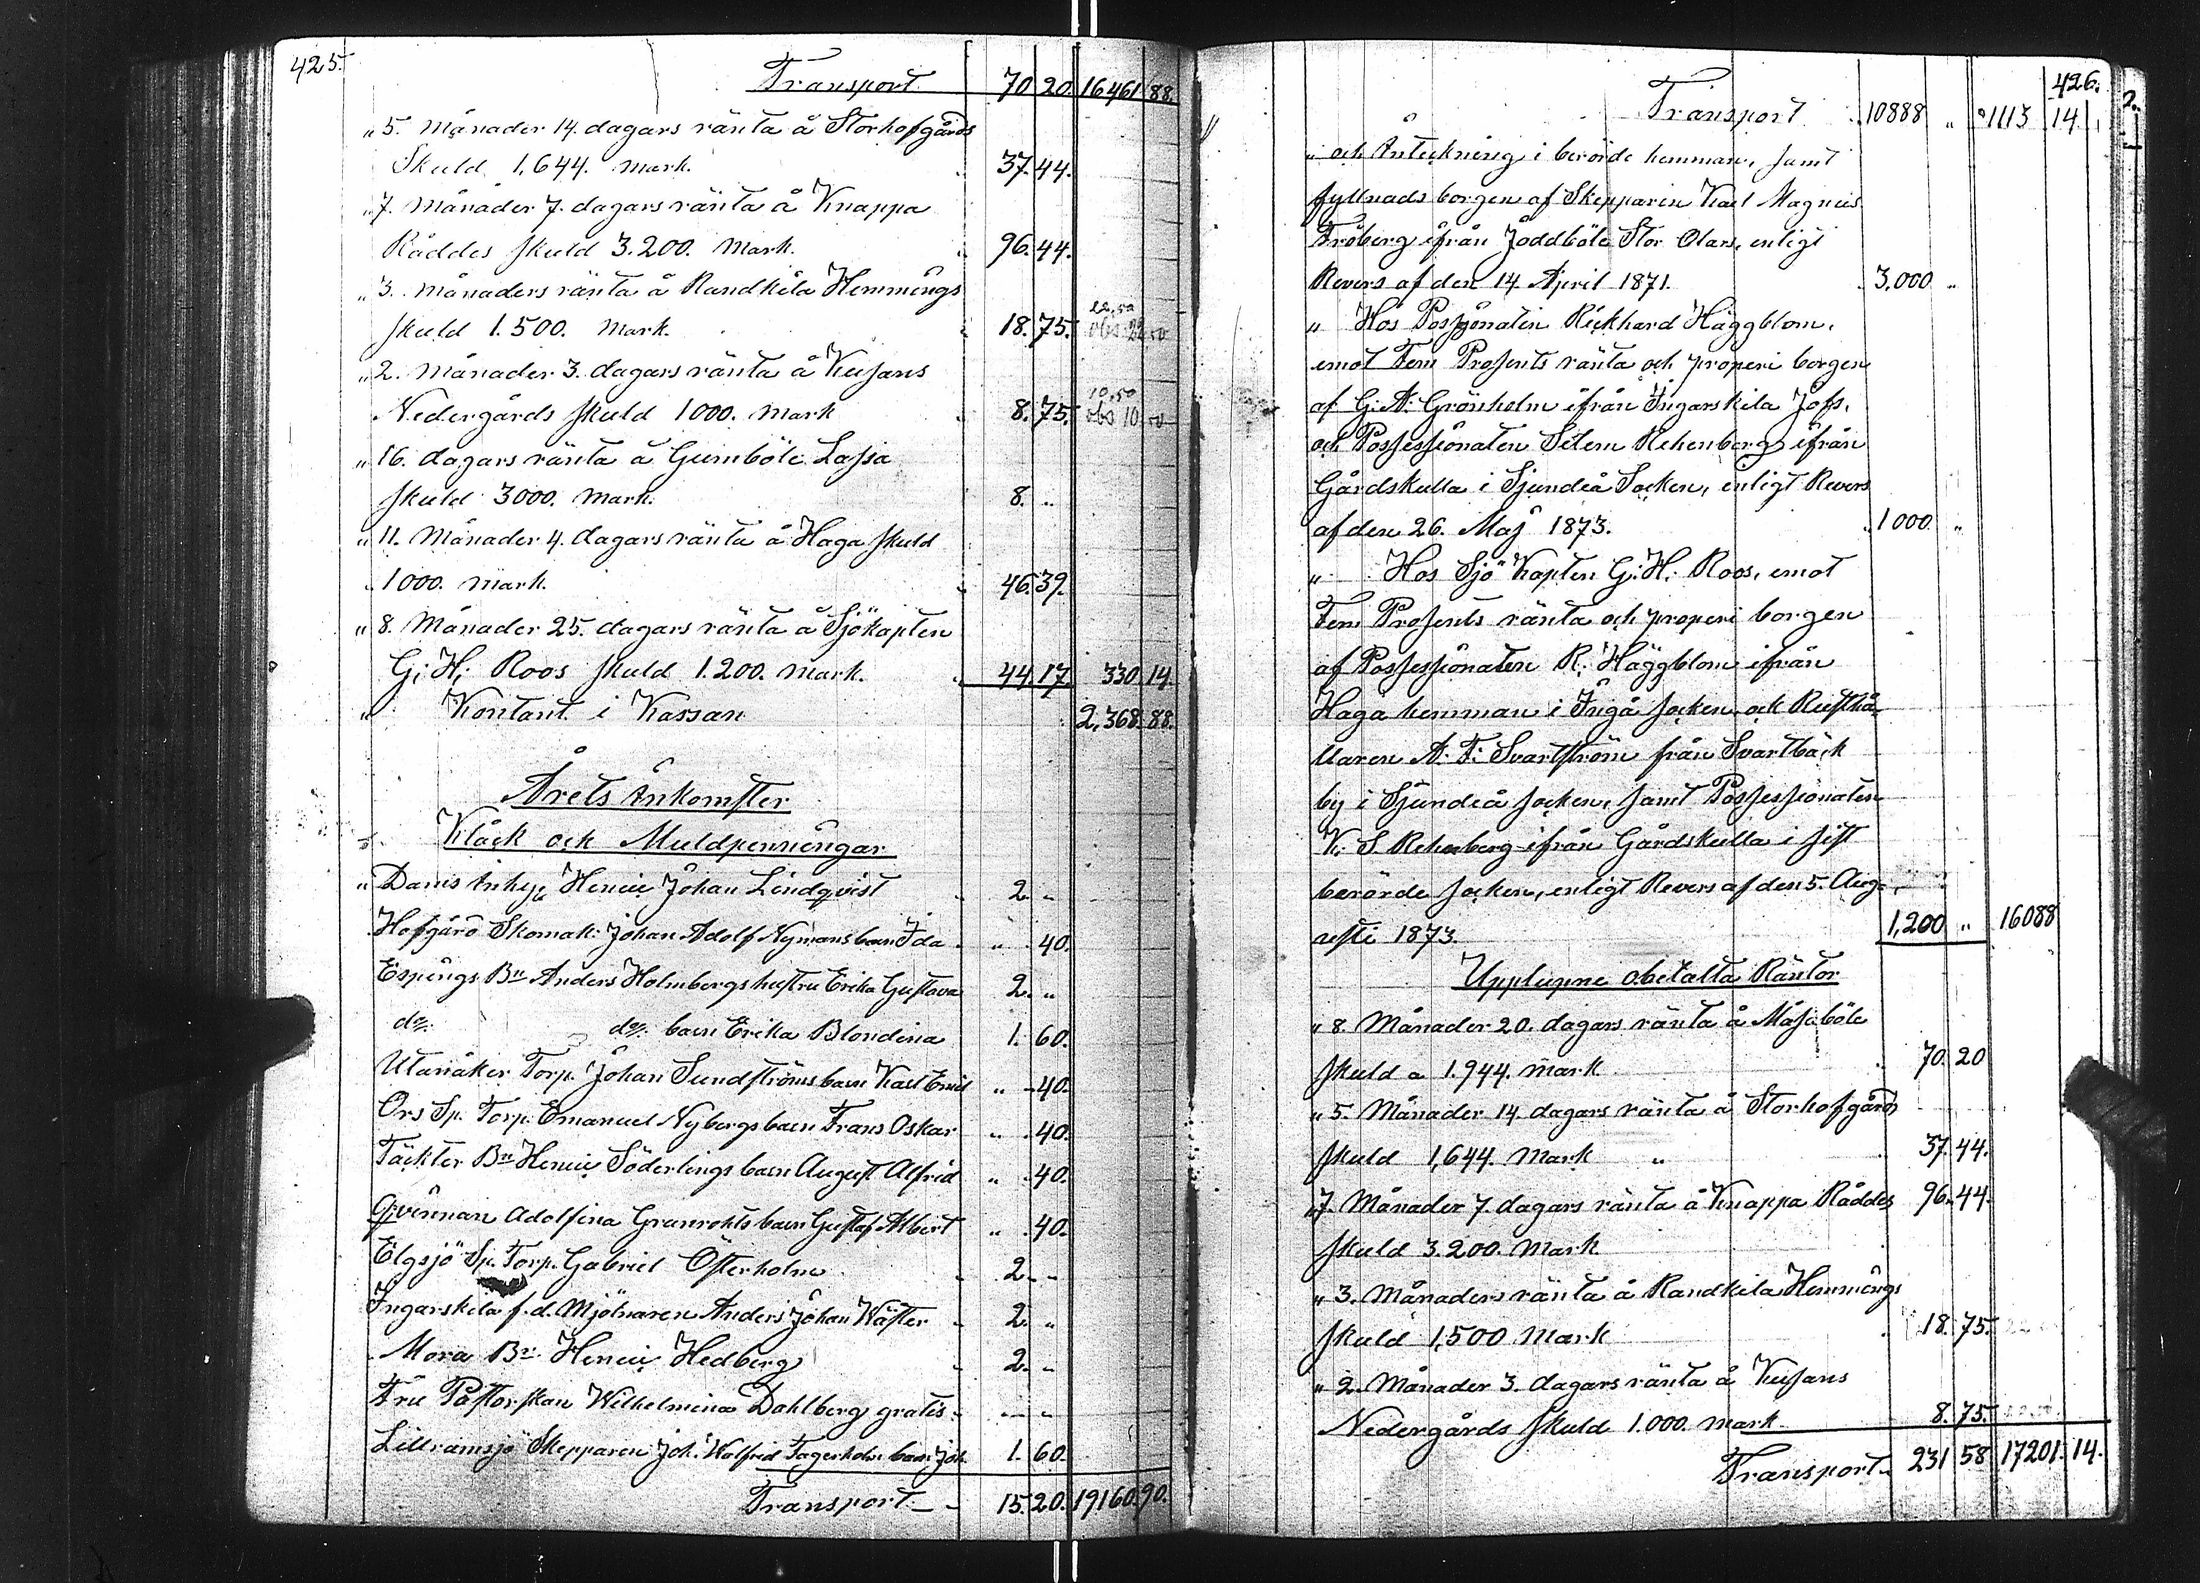 425.
Transport 70 20. 16461 88.
" 5. Månader 14. dagars ränta å Storhofgårds
Skuld 1,644. mark. 37. 44.
" 7. Månader 7. dagars ränta å Knappa
Räddes skuld 3.200. mark. 96. 44.
" 3. månaders ränta å Randkila Hemmings
skuld 1.500. mark. 18. 75. 22,50
" 2. Månader 3. dagars ränta å Kusans
Nedergårds skuld 1000. mark 8. 75. 10,50
" 16. dagars ränta å Gumböle Lassa
skuld 3000. mark. 8. "
" 11. Månader 4. dagars ränta å Haga skuld
1000. mark. 46. 39.
" 8. Månader 25. dagars ränta å Sjökapten
G: H: Roos skuld 1.200. mark. 44 17. 330 14.
" Kontant i Kassan 2,368. 88.
Årets Inkomster
Kläck och Muldpenningar
" Danis Inhy: Henric Johan Lindqvist 2. "
Hofgård Skomak: Johan Adolf Nymans barn Ida " 40.
Espings Bn Anders Holmbergs hustru Erika Gustava 2. "
do: do: barn Erika Blondina 1. 60.
Utanåker Torp. Johan Sundströms barn Karl Emil " 40.
Ors Sp. Torp. Emanuel Nybergs barn Frans Oskar " 40.
Täckter Bn Henric Söderlings barn August Alfrid " 40.
Qvinnan Adolfina Granrohts barn Gustaf Albert " 40.
Elgsjö Sp. Torp. Gabriel Österholm 2. "
Ingarskila f.d. Mjölnaren Anders Johan Wäster 2. "
Mora Bn Henric Hedberg 2. "
Fru Pastorskan Wilhelmina Dahlberg gratis. " "
Lillramsjö Skepparen Joh: Walfrid Fagerholm barn Joh. 1. 60.
Transport 15. 20. 19160. 90.
426.
Transport 10888 " 1113 14
" och Inteckning i berörde hemman, samt
fyllnads borgen af Skepparen Karl Magnus
Fröberg ifrån Joddböle Stor Olars, enligt
Revers af den 14 April 1871. 3,000 "
" Hos Possjonaten Rickhard Häggblom,
emot Fem Prosents ränta och properi borgen
af G: A: Grönholm ifrån Ingarskila Jofs,
och Possessionaten Selem Rehenberg ifrån
Gårdskulla i Sjundeå Socken, enligt Revers
af den 26. Maj 1873. 1000 "
" Hos Sjö Kapten G: H: Roos, emot
Fem Prosents ränta och properi borgen
af Possessionaten R: Häggblom ifrån
Haga hemman i Ingå socken, och Rusthå-
llaren A: F: Svartström från Svartbäck
by i Sjundeå socken, samt Possessionaten
K: S. Rehenberg ifrån Gårdskulla i sist
berörde socken, enligt Revers af den 5. Aug-
usti 1873. 1,200 " 16088
Upplupne obetalta Räntor
" 8. Månader 20. dagars ränta å Måsaböle
skuld a 1.944. mark 70. 20
" 5. Månader 14. dagars ränta å Storhofgårds
skuld 1,644. Mark " 37. 44.
" 7. Månader 7. dagars ränta å Knappa Räddes 96. 44.
skuld 3.200. Mark
" 3. Månaders ränta å Randkila Hemmings
skuld 1,500 Mark 18. 75.
" 2. Månader 3. dagars ränta å Kusans
Nedergårds skuld 1.000. mark. 8. 75.
Transport. 231 58 17201. 14.